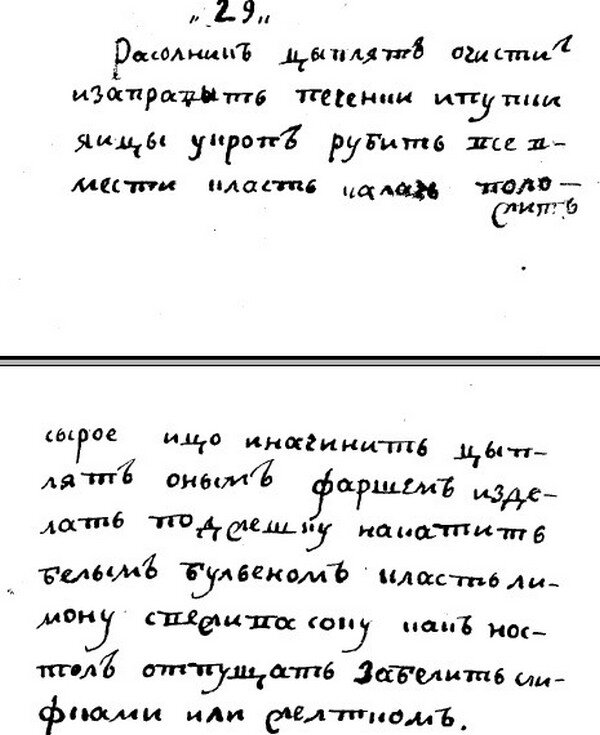 „29„
Расолникъ цыплятъ очистит
печенки ипупки
яицы укропъ рубить все в-
мести класть поло-
жить
сырое ицо иначинить цып-
лятъ онымъ фаршемъ изде-
лать накатить
белымъ бульеномъ класть ли-
мону свежива соку какъ нос-
толъ отпущать забелить сли-
фками или желткомъ.